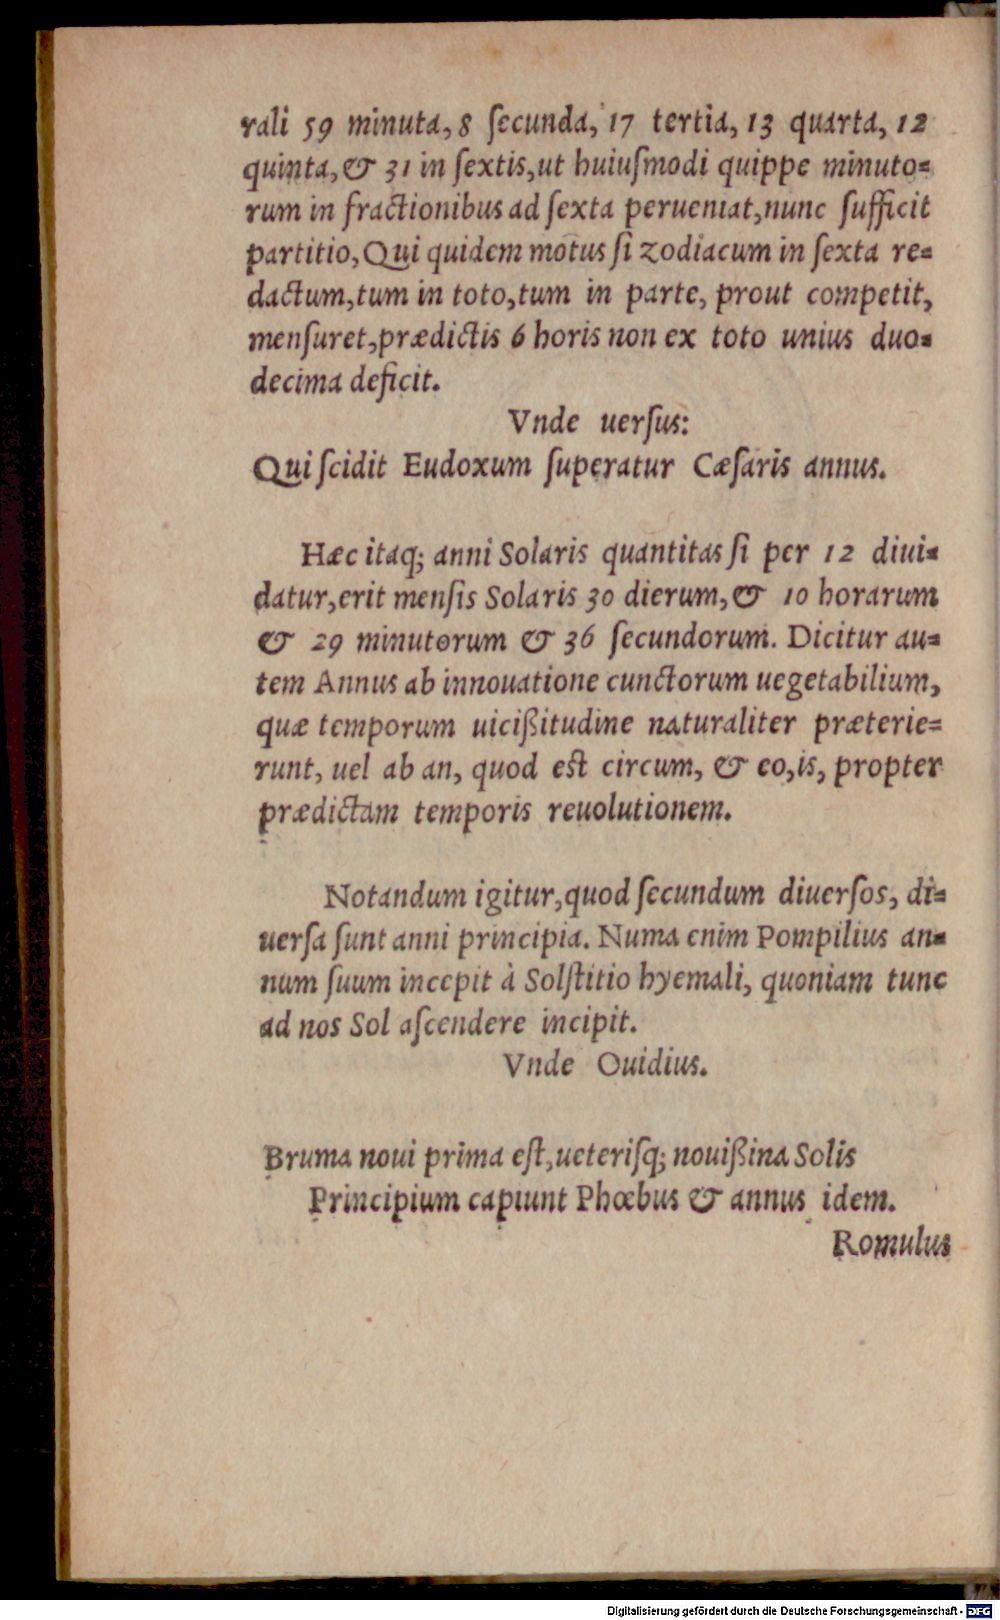 rali 59 minuta, 8 ſecunda, 17 tertia, 13 quarta, 12
quinta, & 31 in ſextis, ut huiuſmodi quippe minuto-
rum in fractionibus ad ſexta perueniat, nunc ſufficit
partitio, Qui quidem motus ſi zodiacum in ſexta re-
dactum, tum in toto, tum in parte, prout competit,
menſuret, prædictis 6 horis non ex toto unius duo-
decima deficit.
Vnde uerſus:
Qui ſcidit Eudoxum ſuperatur Cæſaris annus.
Hæc itaq; anni Solaris quantitas ſi per 12 diui-
datur, erit menſis Solaris 30 dierum, & 10 horarum
& 29 minutorum & 36 ſecundorum. Dicitur au-
tem Annus ab innouatione cunctorum uegetabilium,
quæ temporum uicißitudine naturaliter præterie-
runt, uel ab an, quod eſt circum, & eo, is, propter
prædictam temporis reuolutionem.
Notandum igitur, quod ſecundum diuerſos, di-
uerſa ſunt anni principia. Numa enim Pompilius an-
num ſuum incepit à Solſtitio hyemali, quoniam tunc
ad nos Sol aſcendere incipit.
Vnde Ouidius.
Bruma noui prima eſt, ueteriſq; nouißina Solis
Principium capiunt Phœbus & annus idem.
Romulus
Digitalisierung gefördert durch die Deutsche Forschungsgemeinschaft - DFG